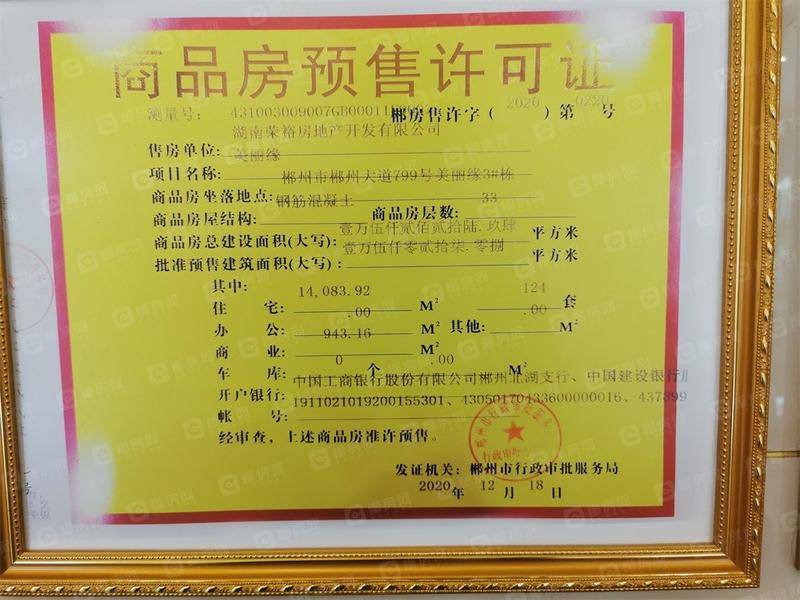 商品房预售许可证
测量号: 431003009007GB0001
郴房售许字 ( 2020 ) 第 0220 号
湖南荣裕房地产开发有限公司
售房单位:
美丽缘
项目名称:
郴州市郴州大道799号美丽缘3#栋
商品房坐落地点:
钢筋混凝土 33
商品房屋结构: 商品房层数:
壹万伍仟贰佰贰拾陆.玖肆
商品房总建设面积(大写): 平方米
壹万伍仟零贰拾柒.零捌
批准预售建筑面积(大写): 平方米
其中: 14,083.92 124
住 宅: .00 M² .00 套
办 公: 943.16 M² 其他: M²
商 业: 0 M² .00
车 库: 个 M²
中国工商银行股份有限公司郴州北湖支行、中国建设银行
开户银行:
1911021019200155301、43050170433600000016、437899
帐 号:
经审查,上述商品房准许预售。
发证机关: 郴州市行政审批服务局
2020 年 12 月 18 日